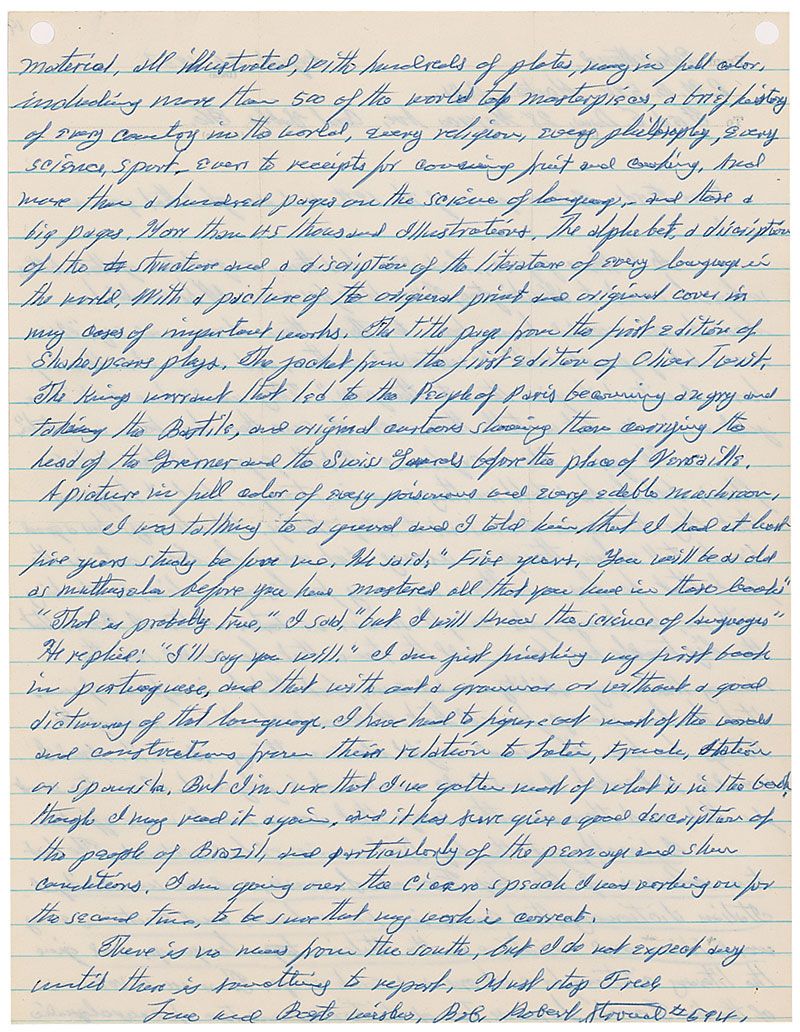 material, all illustrated, with hundreds of plates, many in full color,
including more than 500 of the world top masterpieces, a brief history
of every country in the world, every religion, every philosophy, every
science, sport, even to receipts for canning fruit and cooking, and
more than a hundred pages on the science of language, and those a
big pages. More than 45 thousand illustrations. The alphabet, a discription
of the structure and a discription of the literature of every language in
the world. With a picture of the original print and original cover in
my cases of important works. The title page from the first edition of
Shakespeare plays. The jacket from the first edition of Oliver Twist.
The Kings warrant that led to the People of Paris becoming angry and
taking the Bastile, and original cartoons showing them carrying the
head of the Governer and the Swiss Guards before the place of Versaille.
A picture in full color of every poisonous and every edable mushroom.
I was talking to a guard and I told him that I had at least
five years study before me. He said, "Five years. You will be as old
as muthusala before you have mastered all that you have in those books"
"That is probably true," I said, "but I will know the science of languages"
He replie: "I'll say you will." I am just finishing my first book
in portuguese, and that with out a grammar or without a good
dictionary of that language. I have had to figure out most of the words
and constructions from their relation to Latin, French, Italian
or spanish. But I'm sure that I've gotten most of what is in the book,
though I may read it again, and it has sure give a good description of
the people of Brazil, and particularly of the peonage and slum
conditions. I am going over the Cicero speach I was working on for
the second time, to be sure that my work is correct.
There is no news from the south, but I do not expect any
until there is something to report, Must stop Fred
Love and Best wishes, Bob. Robert Stroud #594.